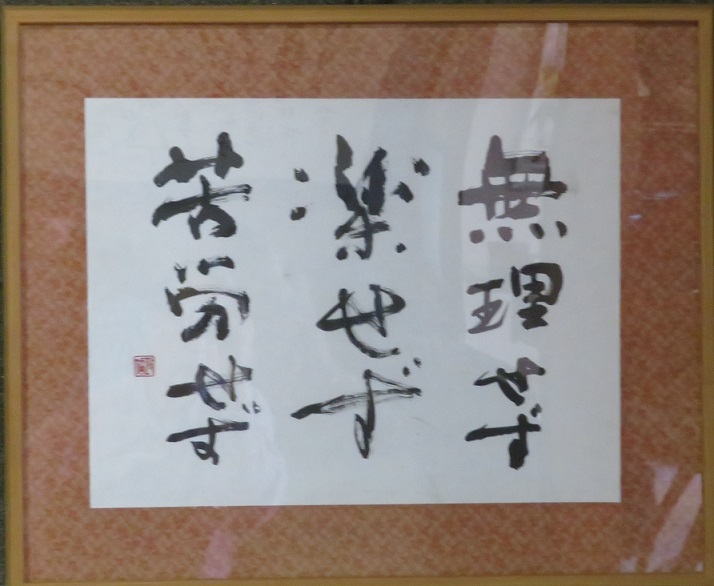 無理せず
楽せず
苦労せず